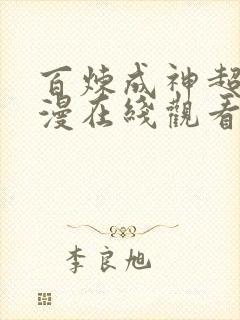 百煉成神超
漫在綫觀看
李良旭